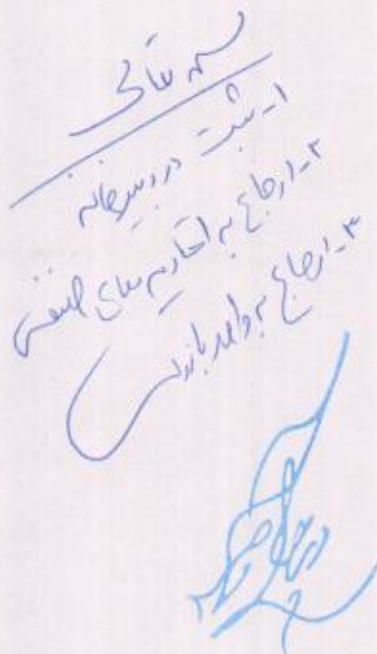 بسمه تعالی
۱- ثبت در دبیرخانه
۲- ارجاع به اتحادیه های صنفی
۳- ارجاع به واحد بازرسی